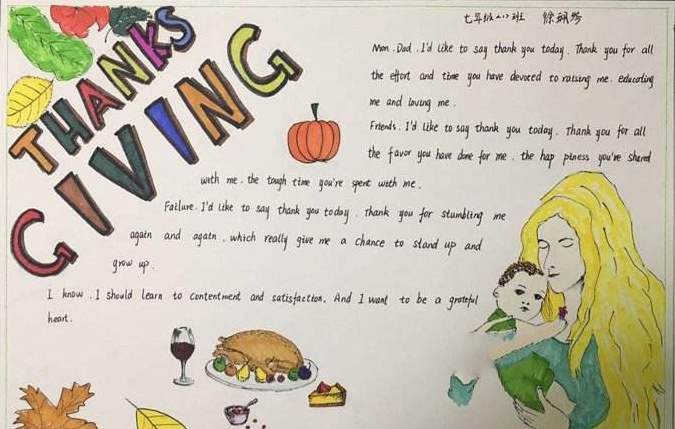 THANKS
GIVING
七年级
班
Mon. Dad. I'd like to say thank you today. Thank you for all
the effort and time you have devoted to raising me. educating
me and loving me.
Friends. I'd like to say thank you today. Thank you for all
the favor you have done for me. the hap piness you're shared
with me. the tough time you're spent with me.
Failure. I'd like to say thank you today. Thank you for stumbling me
again and again, which really give me a chance to stand up and
grow up.
I know. I should learn to contentment and satisfaction. And I want to be a grateful
heart.